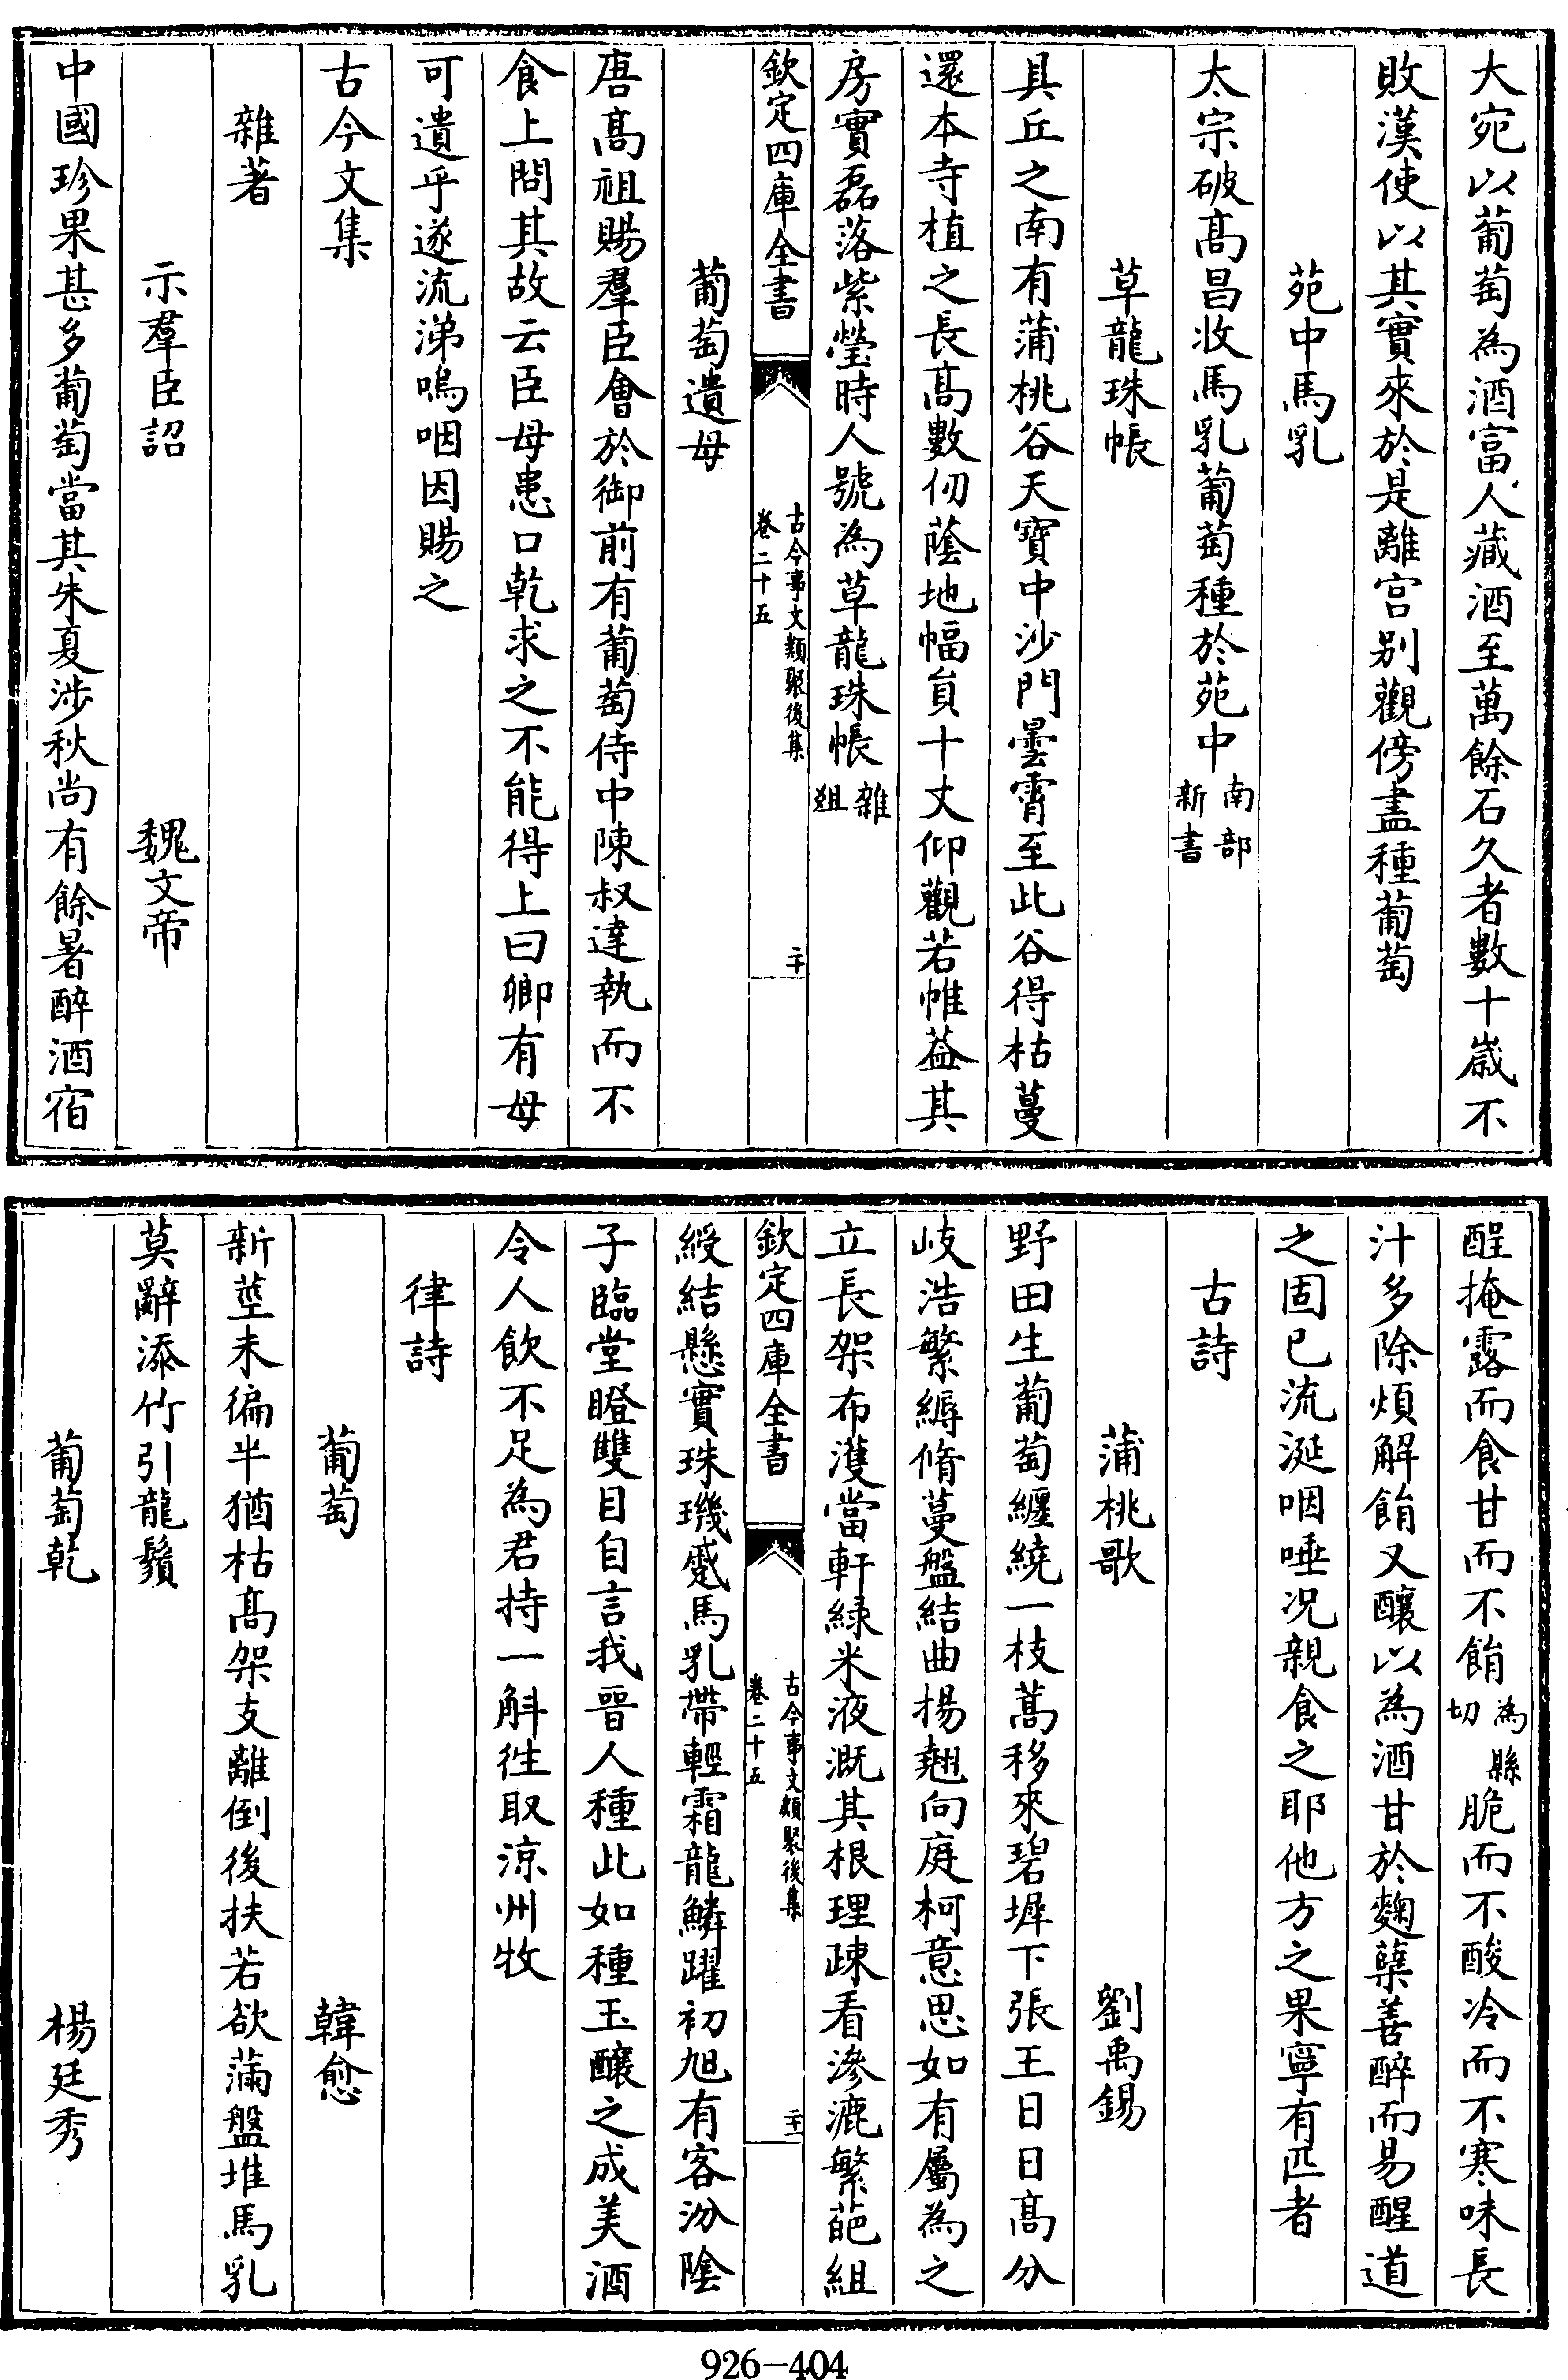 大宛以葡萄為酒富人藏酒至萬餘石久者數十歲不
敗漢使以其實來於是離宫别觀傍盡種葡萄
苑中馬乳
太宗破髙昌收馬乳葡萄種於苑中南部新書
草龍珠帳
具丘之南有蒲桃谷天寶中沙門曇霄至此谷得枯蔓
還本寺植之長髙數仞蔭地幅員十丈仰觀若帷葢其
房實磊落紫瑩時人號為草龍珠帳雜俎
欽定四庫全書
古今事文類聚後集
卷二十五
二十
葡萄遺母
唐髙祖賜羣臣會於御前有葡萄侍中陳叔達執而不
食上問其故云臣母患口乾求之不能得上曰卿有母
可遺乎遂流涕嗚咽因賜之
古今文集
雜著
示羣臣詔 魏文帝
中國珍果甚多葡萄當其朱夏涉秋尚有餘暑醉酒宿
酲掩露而食甘而不䬼為縣切脆而不酸冷而不寒味長
汁多除煩解䬼又釀以為酒甘於麴糵善醉而易醒道
之固已流涎咽唾况親食之耶他方之果寧有匹者
古詩
蒲桃歌 劉禹錫
野田生葡萄纏繞一枝蒿移來碧墀下張王日日髙分
岐浩繁縟脩蔓盤結曲揚翹向庭柯意思如有屬為之
立長架布濩當軒緑米液溉其根理疎看滲漉繁葩組
欽定四庫全書
古今事文類聚後集
卷二十五
二十一
綬結懸實珠璣蹙馬乳帶輕霜龍鱗躍初旭有客汾陰
子臨堂瞪雙目自言我晉人種此如種玉釀之成美酒
令人飲不足為君持一斛徃取涼州牧
律詩
葡萄 韓愈
新莖未徧半猶枯髙架支離倒後扶若欲滿盤堆馬乳
莫辭添竹引龍鬚
葡萄乾 楊廷秀
926-404